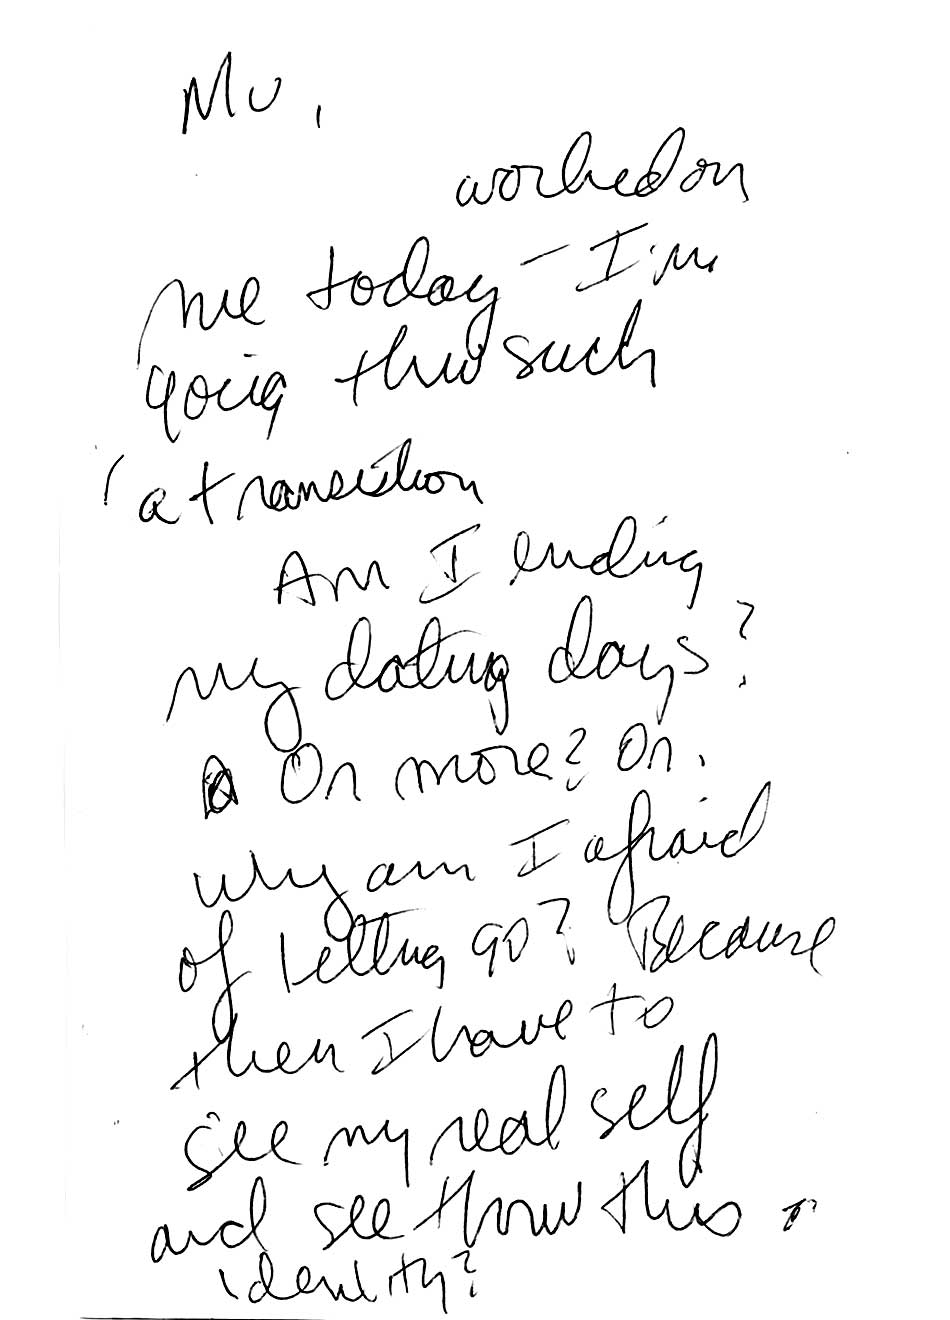 Mu,
worked on
me today - I'm
going thru such
a transition
Am I ending
my dating days?
Or more? Or.
why am I afraid
of letting go? Because
then I have to
see my real self
and see throu this
identity?